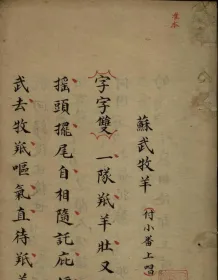 蘇武牧羊 付小番上唱
字字雙 一隊羝羊壯又
搖頭擺尾自相隨託庇
武去牧羝嘔氣直待羝羊